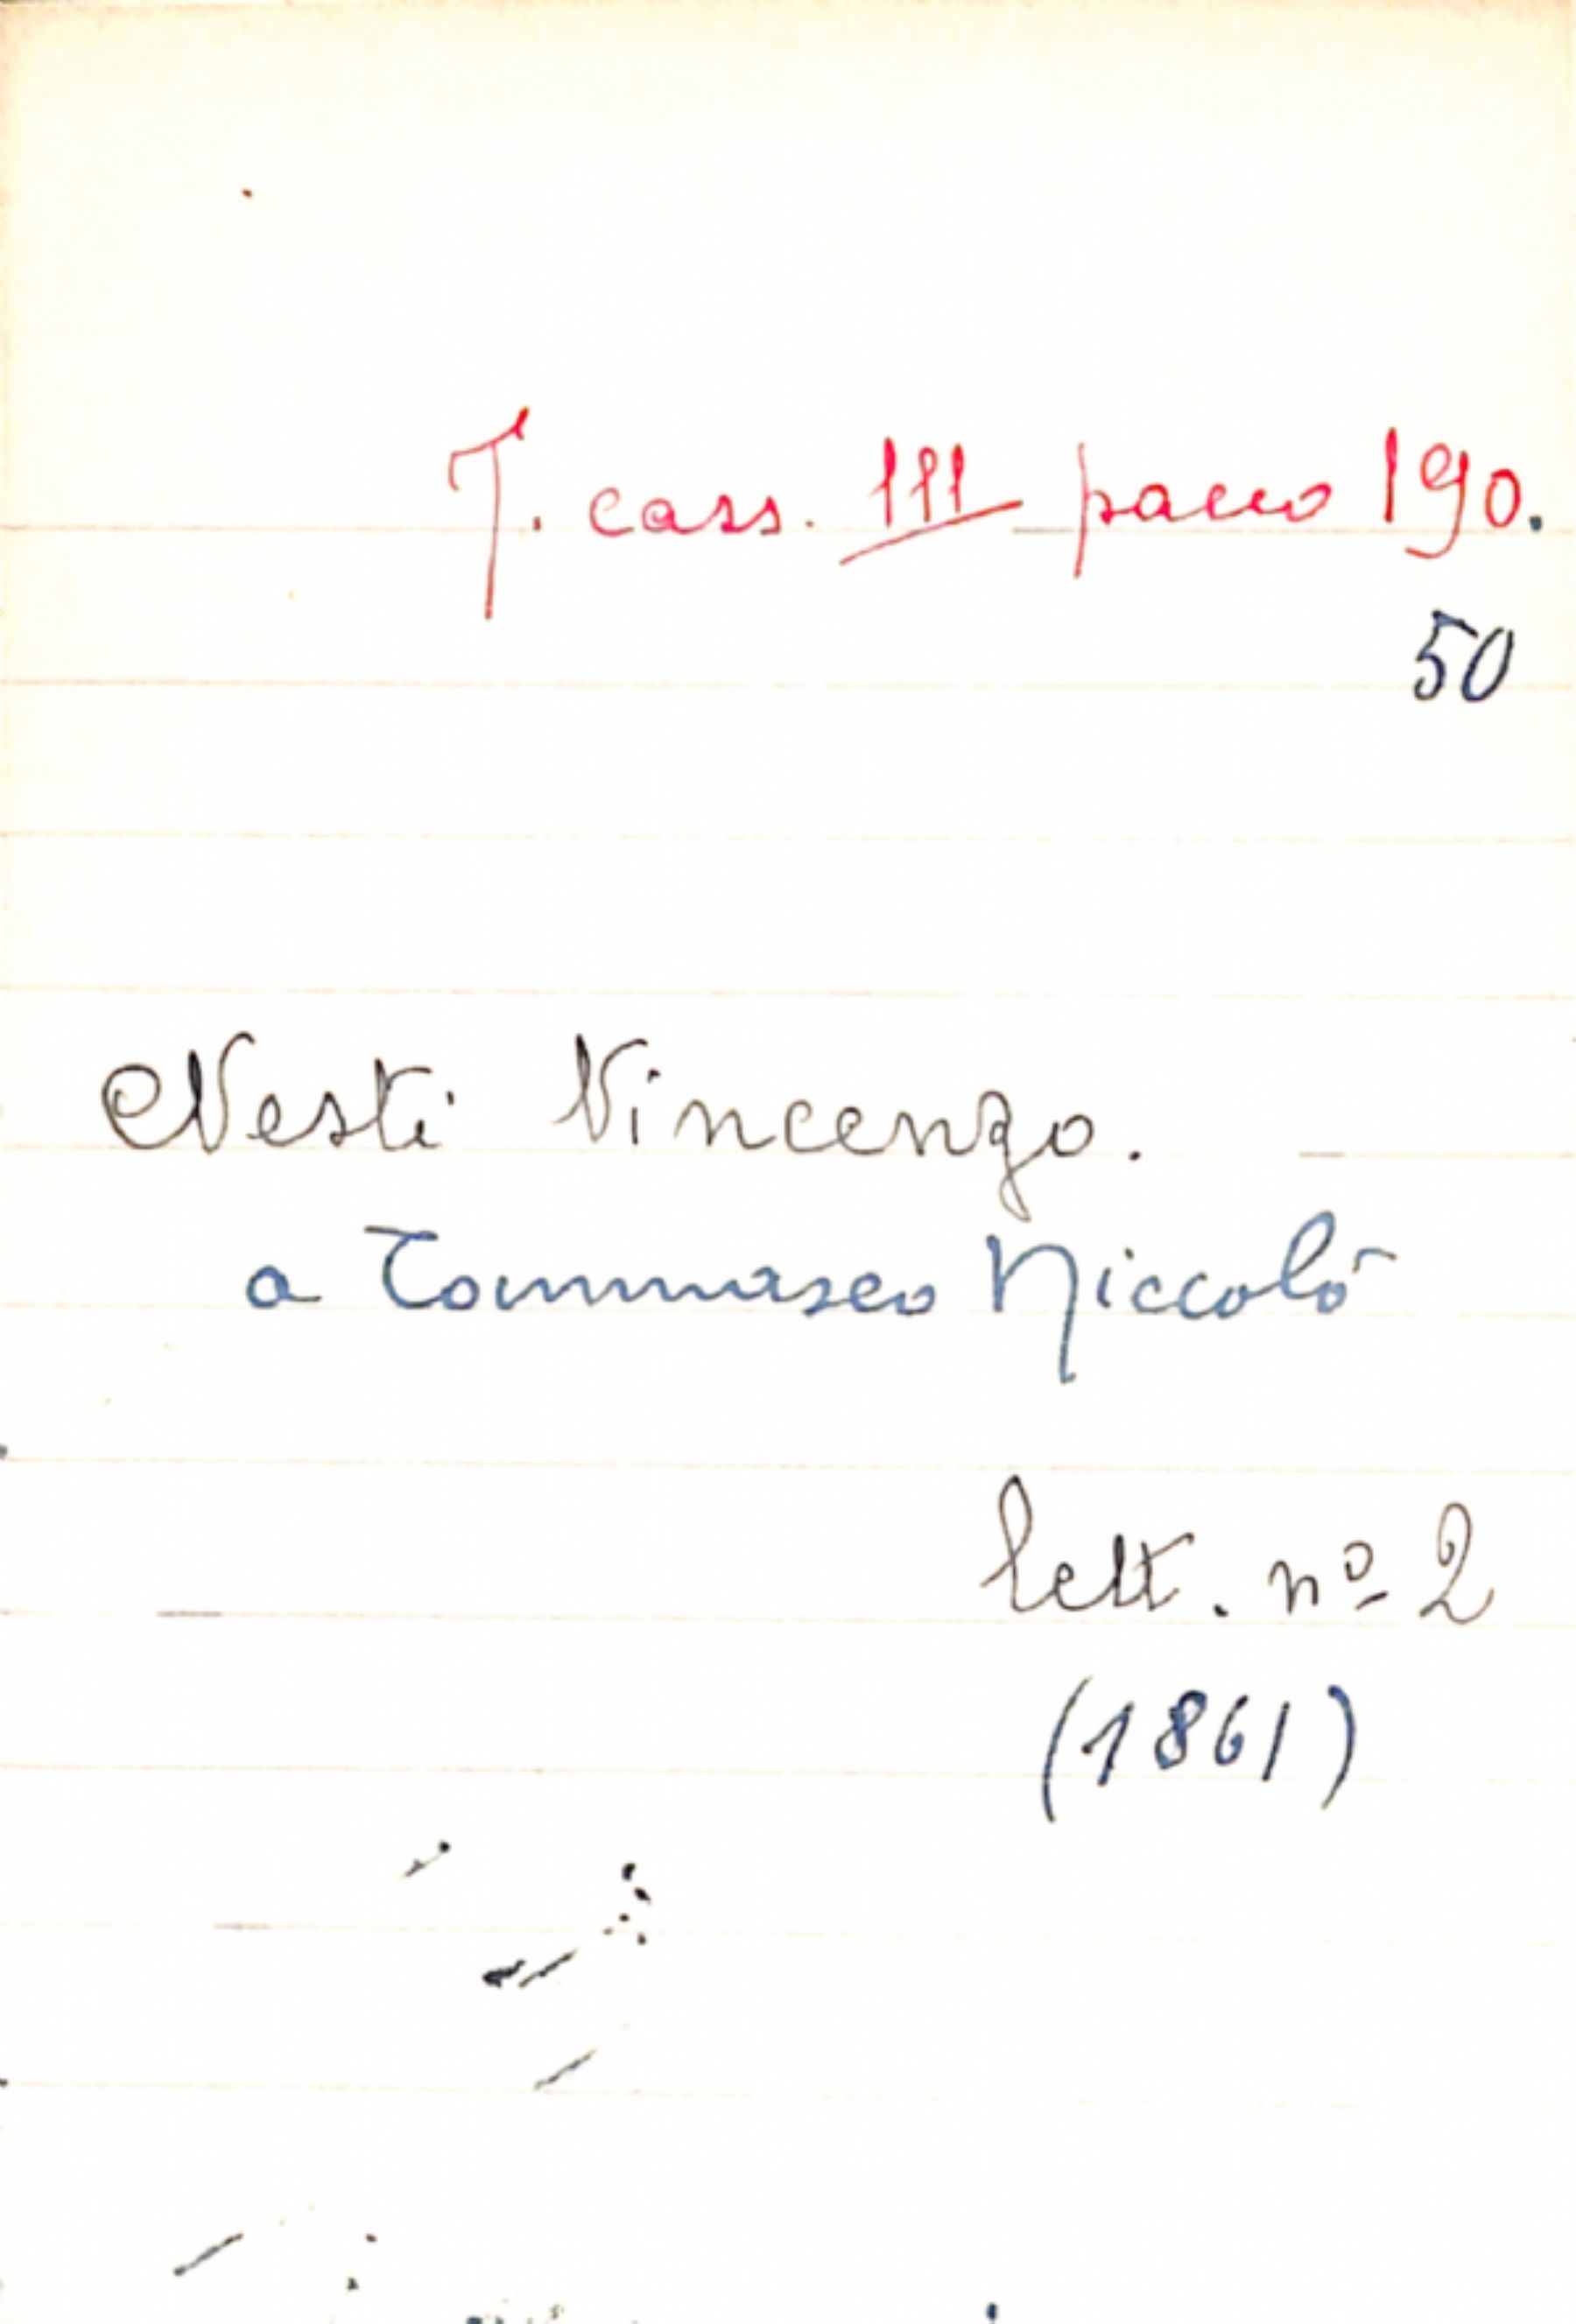 T. cass. III pacco 190.
50
Nesti Vincenzo.
a Tommaseo Niccolò
lett. nº 2
(1861)